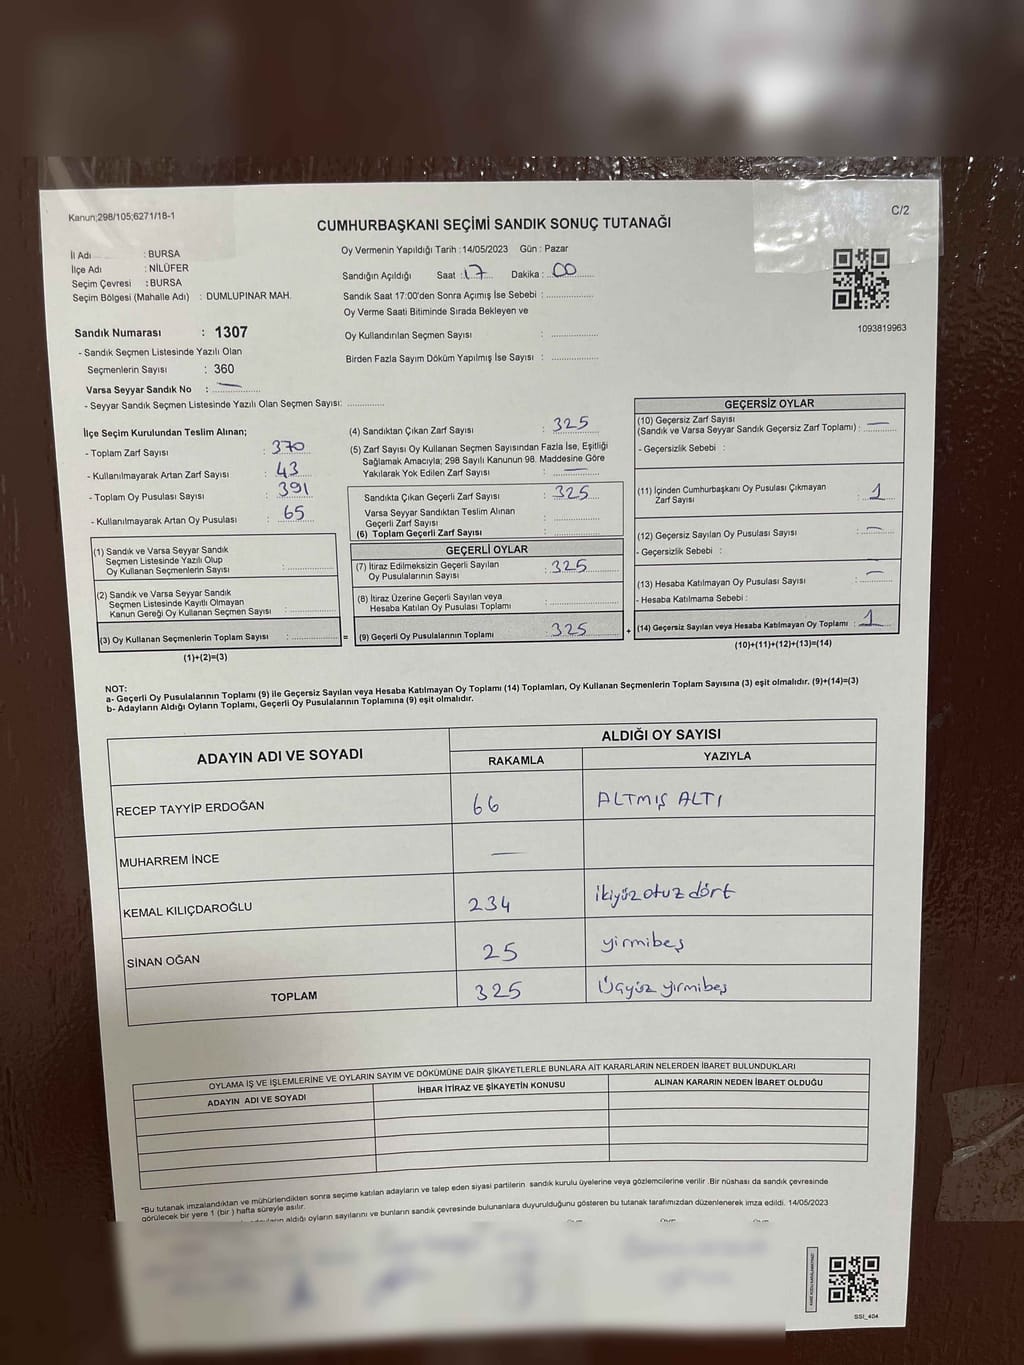 Kanun;298/105;6271/18-1
C/2
CUMHURBAŞKANI SEÇİMİ SANDIK SONUÇ TUTANAĞI
İl Adı : BURSA
İlçe Adı : NİLÜFER
Seçim Çevresi : BURSA
Seçim Bölgesi (Mahalle Adı) : DUMLUPINAR MAH.
Oy Vermenin Yapıldığı Tarih : 14/05/2023 Gün : Pazar
Sandığın Açıldığı Saat : 17 Dakika : 00
Sandık Saat 17:00'den Sonra Açımış İse Sebebi :
Oy Verme Saati Bitiminde Sırada Bekleyen ve
Oy Kullandırılan Seçmen Sayısı :
Birden Fazla Sayım Döküm Yapılmış İse Sayısı :
1093819963
Sandık Numarası : 1307
- Sandık Seçmen Listesinde Yazılı Olan
Seçmenlerin Sayısı : 360
Varsa Seyyar Sandık No : —
- Seyyar Sandık Seçmen Listesinde Yazılı Olan Seçmen Sayısı:
İlçe Seçim Kurulundan Teslim Alınan;
- Toplam Zarf Sayısı : 370
- Kullanılmayarak Artan Zarf Sayısı : 43
- Toplam Oy Pusulası Sayısı : 391
- Kullanılmayarak Artan Oy Pusulası : 65
(1) Sandık ve Varsa Seyyar Sandık
Seçmen Listesinde Yazılı Olup
Oy Kullanan Seçmenlerin Sayısı :
(2) Sandık ve Varsa Seyyar Sandık
Seçmen Listesinde Kayıtlı Olmayan
Kanun Gereği Oy Kullanan Seçmen Sayısı :
(3) Oy Kullanan Seçmenlerin Toplam Sayısı : =
(1)+(2)=(3)
(4) Sandıktan Çıkan Zarf Sayısı : 325
(5) Zarf Sayısı Oy Kullanan Seçmen Sayısından Fazla İse, Eşitliği
Sağlamak Amacıyla; 298 Sayılı Kanunun 98. Maddesine Göre
Yakılarak Yok Edilen Zarf Sayısı : —
Sandıkta Çıkan Geçerli Zarf Sayısı : 325
Varsa Seyyar Sandıktan Teslim Alınan
Geçerli Zarf Sayısı :
(6) Toplam Geçerli Zarf Sayısı :
GEÇERLİ OYLAR
(7) İtiraz Edilmeksizin Geçerli Sayılan
Oy Pusulalarının Sayısı : 325
(8) İtiraz Üzerine Geçerli Sayılan veya
Hesaba Katılan Oy Pusulası Toplamı :
(9) Geçerli Oy Pusulalarının Toplamı 325 +
GEÇERSİZ OYLAR
(10) Geçersiz Zarf Sayısı
(Sandık ve Varsa Seyyar Sandık Geçersiz Zarf Toplamı) : —
- Geçersizlik Sebebi :
(11) İçinden Cumhurbaşkanı Oy Pusulası Çıkmayan
Zarf Sayısı : 1
(12) Geçersiz Sayılan Oy Pusulası Sayısı : —
- Geçersizlik Sebebi :
(13) Hesaba Katılmayan Oy Pusulası Sayısı : —
- Hesaba Katılmama Sebebi :
(14) Geçersiz Sayılan veya Hesaba Katılmayan Oy Toplamı : 1
(10)+(11)+(12)+(13)=(14)
NOT:
a- Geçerli Oy Pusulalarının Toplamı (9) ile Geçersiz Sayılan veya Hesaba Katılmayan Oy Toplamı (14) Toplamları, Oy Kullanan Seçmenlerin Toplam Sayısına (3) eşit olmalıdır. (9)+(14)=(3)
b- Adayların Aldığı Oyların Toplamı, Geçerli Oy Pusulalarının Toplamına (9) eşit olmalıdır.
ADAYIN ADI VE SOYADI
ALDIĞI OY SAYISI
RAKAMLA YAZIYLA
RECEP TAYYİP ERDOĞAN 66 ALTMIŞ ALTI
MUHARREM İNCE —
KEMAL KILIÇDAROĞLU 234 ikiyüz otuz dört
SİNAN OĞAN 25 yirmibeş
TOPLAM 325 Üçyüz yirmibeş
OYLAMA İŞ VE İŞLEMLERİNE VE OYLARIN SAYIM VE DÖKÜMÜNE DAİR ŞİKAYETLERLE BUNLARA AİT KARARLARIN NELERDEN İBARET BULUNDUKLARI
ADAYIN ADI VE SOYADI İHBAR İTİRAZ VE ŞİKAYETİN KONUSU ALINAN KARARIN NEDEN İBARET OLDUĞU
"Bu tutanak imzalandıktan ve mühürlendikten sonra seçime katılan adayların ve talep eden siyasi partilerin sandık kurulu üyelerine veya gözlemcilerine verilir .Bir nüshası da sandık çevresinde
görülecek bir yere 1 (bir ) hafta süreyle asılır.
aldığı oyların sayılarını ve bunların sandık çevresinde bulunanlara duyurulduğunu gösteren bu tutanak tarafımızdan düzenlenerek imza edildi. 14/05/2023
SSI_404